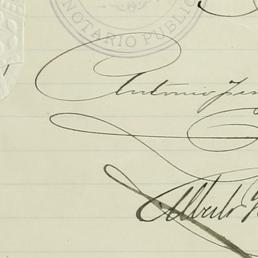 NOTARIO PUBLIC
Antonio
Alberto